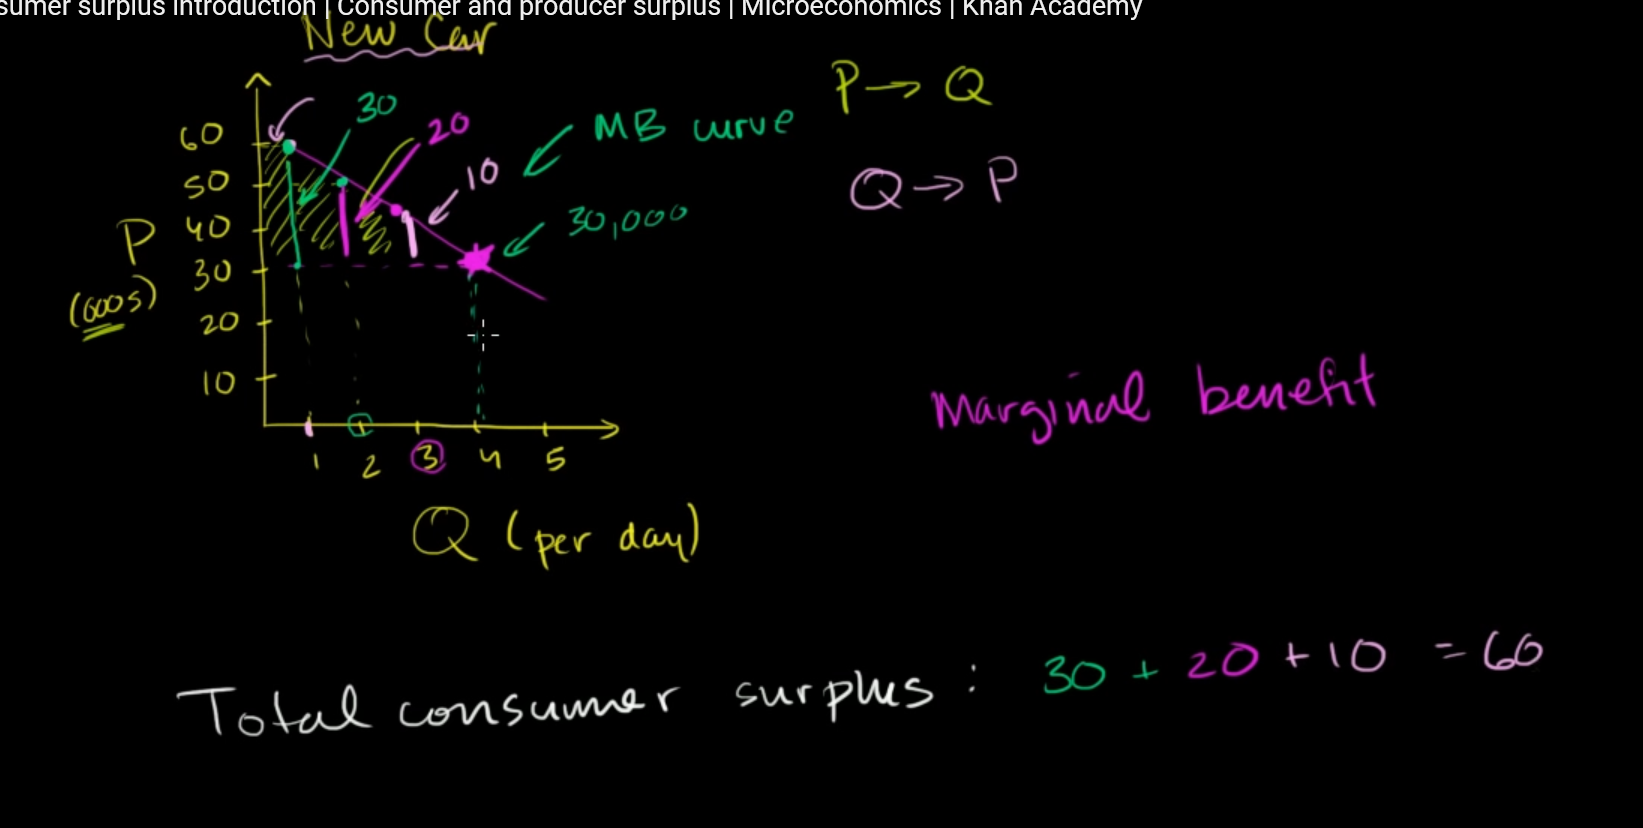 sumer surplus introduction | Consumer and producer surplus | Microeconomics | Khan Academy
New Car
P → Q
Q → P
30
20
10
MB curve
30,000
60
50
40
30
20
10
P
(000s)
1 2 3 4 5
Q (per day)
Marginal benefit
Total consumer surplus : 30 + 20 + 10 = 60